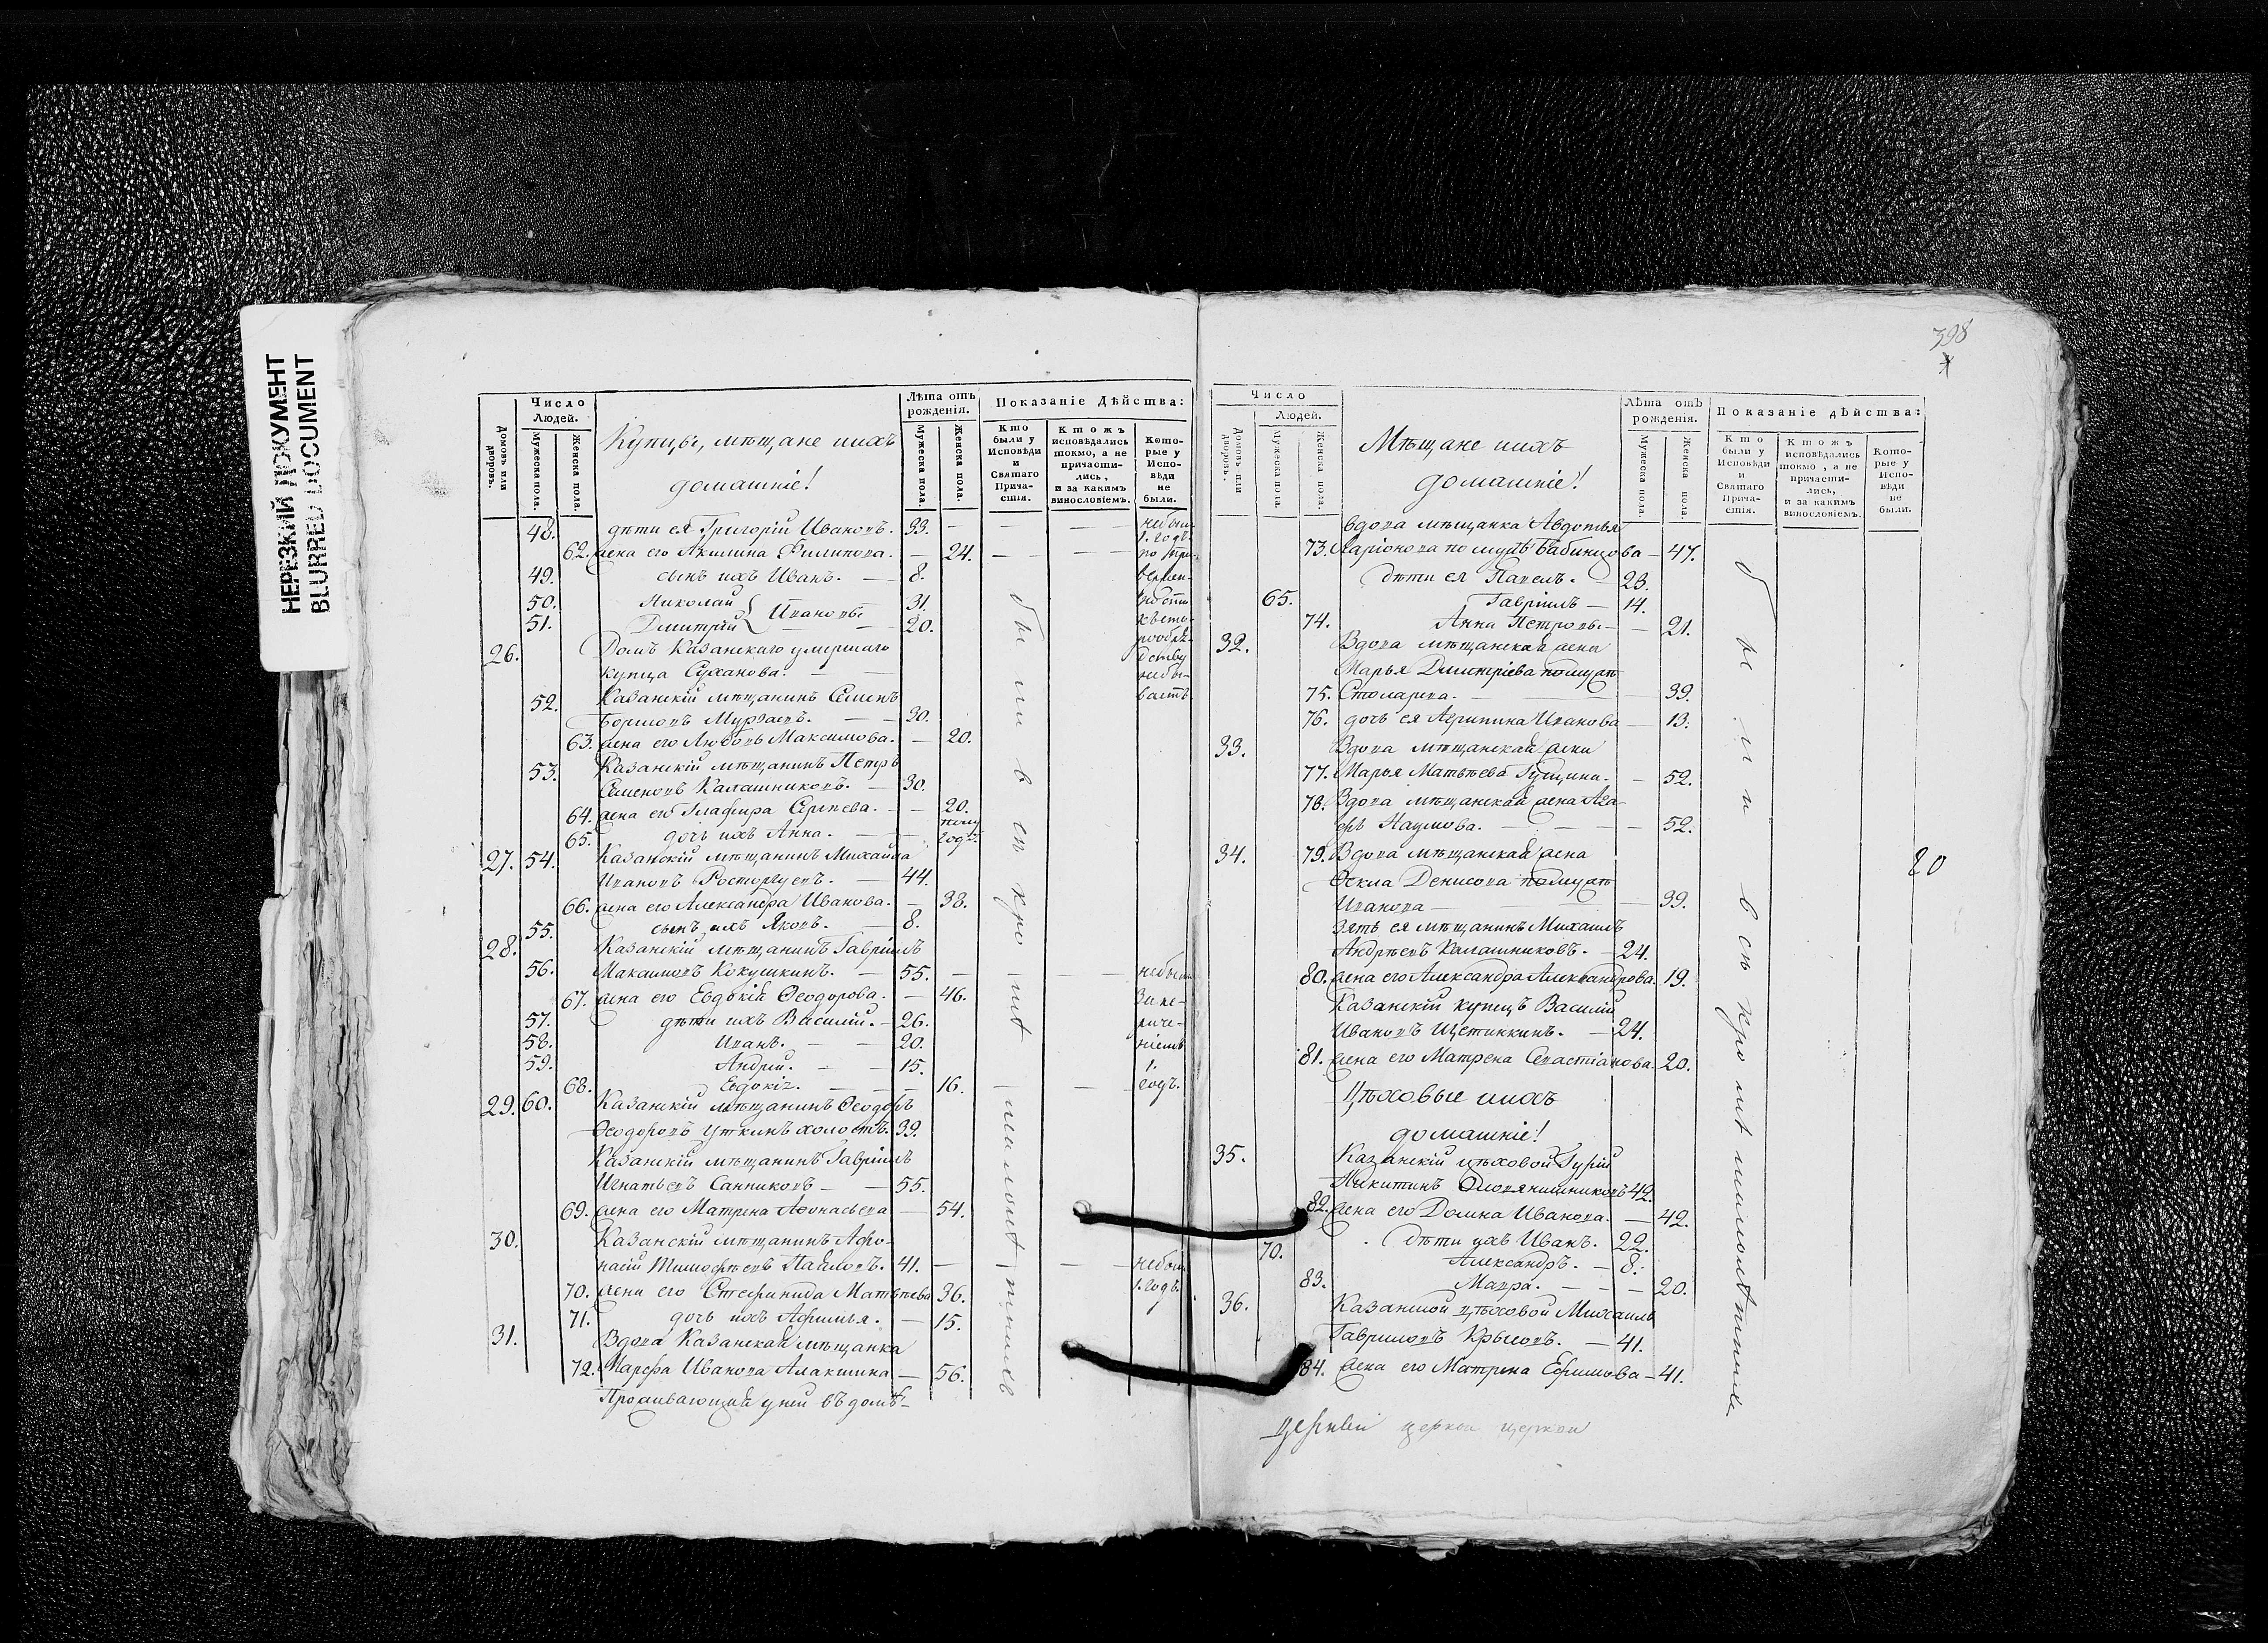 НЕРЕЗКИЙ ДОКУМЕНТ
BLURRED DOCUMENT
Число
Людей.
Домовъ или дворовъ.
Мужеска пола.
Женска пола.
Купцы, мѣщане и ихъ
домашніе!
Лѣта отъ
рожденія.
Мужеска пола.
Женска пола.
Показаніе Дѣйства:
Кто
были у
Исповѣди
и
Святаго
Прича-
стія.
Ктожъ
исповѣдались
токмо, а не
причасти-
лись,
и за какимъ
винословіемъ.
Кото-
рые у
Испо-
вѣди
не
были.
48. дѣти ея Григорій Ивановъ. 33. — небыли
1. годъ
62. жена его Акилина Филипова. — 24.
49. сынъ ихъ Иванъ. — 8.
50. Николай Ивановы 31.
51. Дмитрій 20.
26. Домъ Казанскаго умершаго
купца Суханова.
52. Казанскій мѣщанинъ Семенъ
Мурзаевъ. — 30.
63. жена его Любовь Максимова. — 20.
53. Казанскій мѣщанинъ Петръ
Семеновъ Калашниковъ. — 30.
64. жена его Глафира Сергѣева. — 20.
65. дочь ихъ Анна. — полугодъ.
27. 54. Казанскій мѣщанинъ Михайла
Ивановъ Расторгуевъ. — 44.
66. жена его Александра Иванова. — 38.
55. сынъ ихъ Яковъ. — 8.
28. Казанскій мѣщанинъ Гавріилъ
56. Максимовъ Кокушкинъ. — 55. — небыли
67. жена его Евдокія Ѳеодорова. — 46.
57. дѣти ихъ Василій. — 26.
58. Иванъ. — 20.
59. Андрей. — 15. 1.
68. Евдокія. — 16. годъ.
29. 60. Казанскій мѣщанинъ Ѳеодоръ
Ѳеодоровъ Уткинъ холостъ. 39.
Казанскій мѣщанинъ Гавріилъ
Игнатьевъ Санниковъ — 55.
69. жена его Матрена Аѳонасьева — 54.
30. Казанскій мѣщанинъ Аѳо-
насій Тимофѣевъ Павловъ. 41. — небыли
70. жена его Стефанида Матвѣева 36. 1. годъ.
71. дочь ихъ Афимья. — 15.
31. Вдова Казанская мѣщанка
72. Марфа Иванова Алакшина — 56.
Проживающій у ней въ домѣ
были всѣ кромѣ
398
Число
Людей.
Домовъ или дворовъ.
Мужеска пола.
Женска пола.
Мѣщане и ихъ
домашніе!
Лѣта отъ
рожденія.
Мужеска пола.
Женска пола.
Показаніе дѣйства:
Кто
были у
Исповѣди
и
Святаго
Прича-
стія.
Ктожъ
исповѣдались
токмо, а не
причасти-
лись,
и за какимъ
винословіемъ.
Кото-
рые у
Испо-
вѣди
не
были.
вдова мѣщанка Авдотья
73. Ларіонова по мужѣ Бабинцова — 47.
дѣти ея Павелъ. — 23.
65. Гавріилъ — 14.
74. Анна Петровы — 21.
32. Вдова мѣщанская жена
Марья Дмитріева по мужѣ
75. Столарева. — 39.
76. дочь ея Агрипина Иванова — 13.
33. Вдова мѣщанская жена
77. Марья Матвѣева Гущина. — 52.
78. Вдова мѣщанская жена Ага-
фья Наумова. — 52.
34. 79. Вдова мѣщанская жена
Ѳекла Денисова по мужѣ
Иванова — 39.
Зять ея мѣщанинъ Михаилъ
Андреевъ Калашниковъ. — 24.
80. жена его Александра Александрова. 19.
Казанскій купецъ Василій
Ивановъ Щетинкинъ. — 24.
81. жена его Матрена Севастіанова. 20.
Цѣховые и ихъ
домашніе!
35. Казанскій цѣховой Гурій
Никитинъ 42.
82. жена его Домна Иванова. — 42.
70. дѣти ихъ Иванъ. 22.
Александръ. — 8.
83. Мавра. — 20.
36. Казанской цѣховой Михаилъ
Гавриловъ Крыловъ. — 41.
84. жена его Матрена Ефимова — 41.
были всѣ кромѣ
20
церкви